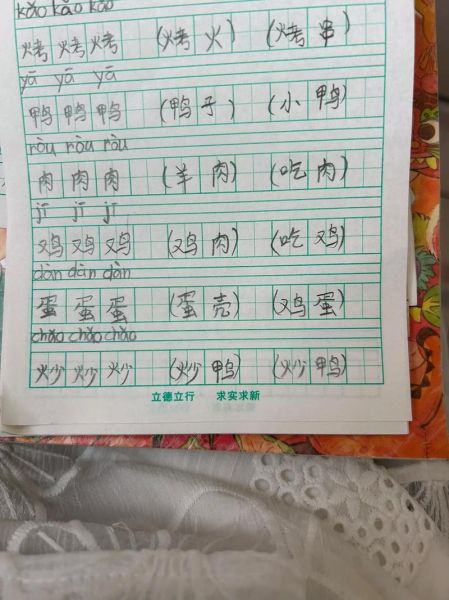 kǎo kǎo kǎo
烤 烤 烤 (烤火) (烤串)
yā yā yā
鸭 鸭 鸭 (鸭子) (小鸭)
ròu ròu ròu
肉 肉 肉 (羊肉) (吃肉)
jī jī jī
鸡 鸡 鸡 (鸡肉) (吃鸡)
dàn dàn dàn
蛋 蛋 蛋 (蛋壳) (鸡蛋)
chǎo chǎo chǎo
炒 炒 炒 (炒鸭) (炒鸭)
立德立行 求实求新